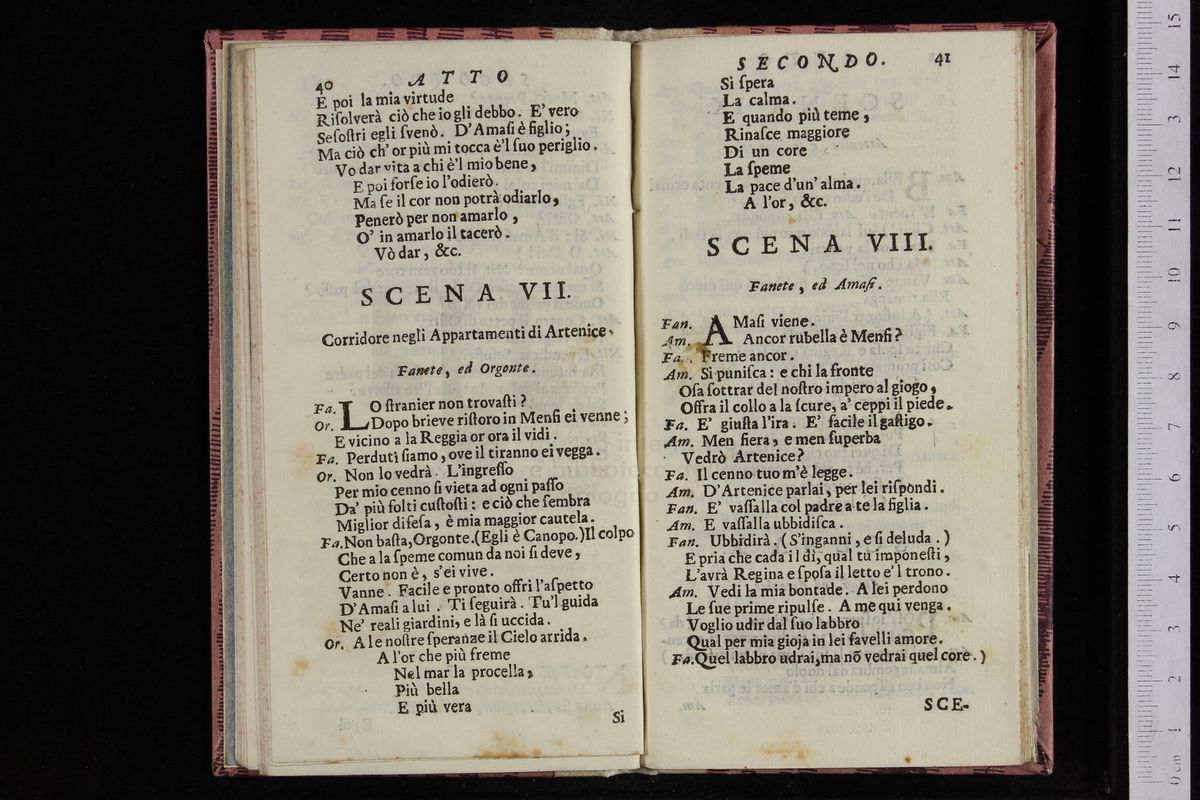 40 ATTO
E poi la mia virtude
Riſolverà ciò che io gli debbo. E' vero
Seſoſtri egli ſvenò. D'Amaſi è figlio;
Ma ciò ch' or più mi tocca è'l ſuo periglio.
Vo dar vita a chi è'l mio bene,
E poi forſe io l'odierò.
Ma ſe il cor non potrà odiarlo,
Penerò per non amarlo,
O' in amarlo il tacerò.
Vò dar, &c.
SCENA VII.
Corridore negli Appartamenti di Artenice.
Fanete, ed Orgonte.
Fa. LO ſtranier non trovaſti?
Or. Dopo brieve riſtoro in Menfi ei venne;
E vicino a la Reggia or ora il vidi.
Fa. Perduti ſiamo, ove il tiranno ei vegga.
Or. Non lo vedrà. L'ingreſſo
Per mio cenno ſi vieta ad ogni paſſo
Da' più folti cuſtoſti: e ciò che ſembra
Miglior difeſa, è mia maggior cautela.
Fa. Non baſta, Orgonte. (Egli è Canopo.) Il colpo
Che a la ſpeme comun da noi ſi deve,
Certo non è, s'ei vive.
Vanne. Facile e pronto offri l'aſpetto
D'Amaſi a lui. Ti ſeguirà. Tu'l guida
Ne' reali giardini, e là ſi uccida.
Or. A le noſtre ſperanze il Cielo arrida.
A l'or che più freme
Nel mar la procella,
Più bella
E più vera
Si
SECONDO. 41
Si ſpera
La calma.
E quando più teme,
Rinaſce maggiore
Di un core
La ſpeme
La pace d'un' alma.
A l'or, &c.
SCENA VIII.
Fanete, ed Amaſi.
Fan. AMaſi viene.
Am. Ancor rubella è Menfi?
Fa. Freme ancor.
Am. Si puniſca: e chi la fronte
Oſa ſottrar del noſtro impero al giogo,
Offra il collo a la ſcure, a' ceppi il piede.
Fa. E' giuſta l'ira. E' facile il gaſtigo.
Am. Men fiera, e men ſuperba
Vedrò Artenice?
Fa. Il cenno tuo m'è legge.
Am. D'Artenice parlai, per lei riſpondi.
Fan. E' vaſſalla col padre a te la figlia.
Am. E vaſſalla ubbidiſca.
Fan. Ubbidirà. (S'inganni, e ſi deluda.)
E pria che cada il dì, qual tu imponeſti,
L'avrà Regina e ſpoſa il letto e'l trono.
Am. Vedi la mia bontade. A lei perdono
Le ſue prime ripulſe. A me qui venga.
Voglio udir dal ſuo labbro
Qual per mia gioja in lei favelli amore.
Fa. Quel labbro udrai, ma nõ vedrai quel core.)
SCE-
0 cm 1 2 3 4 5 6 7 8 9 10 11 12 13 14 15